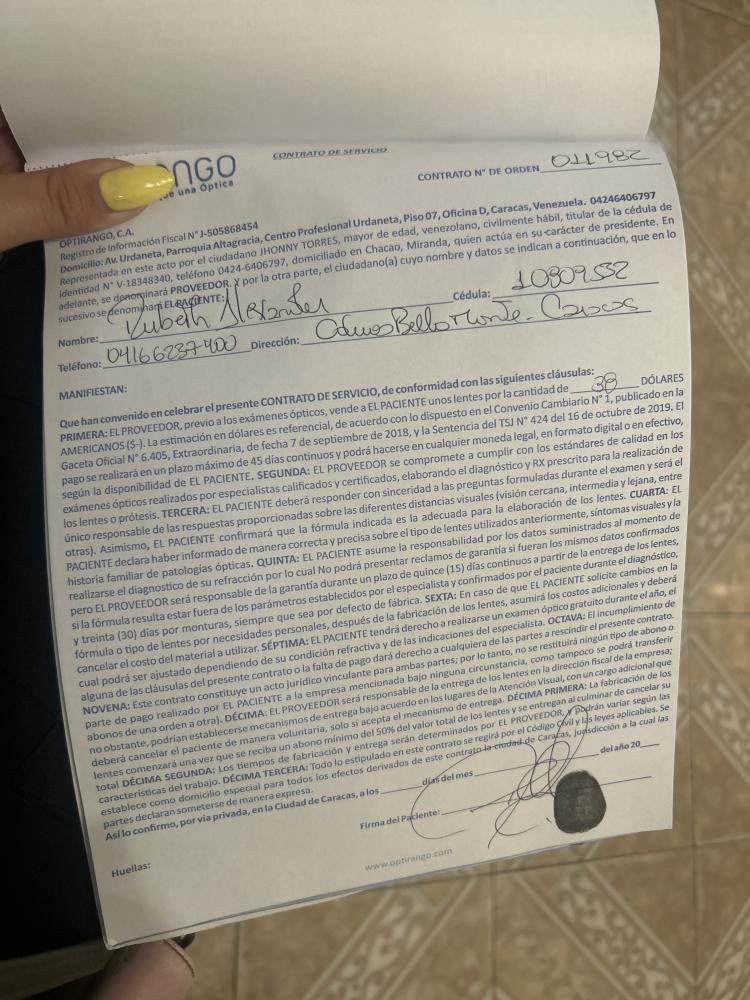 CONTRATO DE SERVICIO
NGO
ue una Óptica
CONTRATO N° DE ORDEN 011982
OPTIRANGO, C.A.
Registro de Información Fiscal N° J-505868454
Domicilio: Av. Urdaneta, Parroquia Altagracia, Centro Profesional Urdaneta, Piso 07, Oficina D, Caracas, Venezuela. 04246406797
Representada en este acto por el ciudadano JHONNY TORRES, mayor de edad, venezolano, civilmente hábil, titular de la cédula de
identidad N° V-18348340, teléfono 0424-6406797, domiciliado en Chacao, Miranda, quien actúa en su carácter de presidente. En
adelante, se denominará PROVEEDOR. Y por la otra parte, el ciudadano(a) cuyo nombre y datos se indican a continuación, que en lo
sucesivo se denominará EL PACIENTE:
Nombre: Cédula: 10809552
Teléfono: 04166237400 Dirección: Bello Monte - Caracas
MANIFIESTAN:
Que han convenido en celebrar el presente CONTRATO DE SERVICIO, de conformidad con las siguientes cláusulas:
PRIMERA: EL PROVEEDOR, previo a los exámenes ópticos, vende a EL PACIENTE unos lentes por la cantidad de 38 DÓLARES
AMERICANOS ($-). La estimación en dólares es referencial, de acuerdo con lo dispuesto en el Convenio Cambiario N° 1, publicado en la
Gaceta Oficial N° 6.405, Extraordinaria, de fecha 7 de septiembre de 2018, y la Sentencia del TSJ N° 424 del 16 de octubre de 2019. El
pago se realizará en un plazo máximo de 45 días continuos y podrá hacerse en cualquier moneda legal, en formato digital o en efectivo,
según la disponibilidad de EL PACIENTE. SEGUNDA: EL PROVEEDOR se compromete a cumplir con los estándares de calidad en los
exámenes ópticos realizados por especialistas calificados y certificados, elaborando el diagnóstico y RX prescrito para la realización de
los lentes o prótesis. TERCERA: EL PACIENTE deberá responder con sinceridad a las preguntas formuladas durante el examen y será el
único responsable de las respuestas proporcionadas sobre las diferentes distancias visuales (visión cercana, intermedia y lejana, entre
otras). Asimismo, EL PACIENTE confirmará que la fórmula indicada es la adecuada para la elaboración de los lentes. CUARTA: EL
PACIENTE declara haber informado de manera correcta y precisa sobre el tipo de lentes utilizados anteriormente, síntomas visuales y la
historia familiar de patologías ópticas. QUINTA: EL PACIENTE asume la responsabilidad por los datos suministrados al momento de
realizarse el diagnostico de su refracción por lo cual No podrá presentar reclamos de garantía si fueran los mismos datos confirmados
pero EL PROVEEDOR será responsable de la garantía durante un plazo de quince (15) días continuos a partir de la entrega de los lentes,
si la fórmula resulta estar fuera de los parámetros establecidos por el especialista y confirmados por el paciente durante el diagnóstico,
y treinta (30) días por monturas, siempre que sea por defecto de fábrica. SEXTA: En caso de que EL PACIENTE solicite cambios en la
fórmula o tipo de lentes por necesidades personales, después de la fabricación de los lentes, asumirá los costos adicionales y deberá
cancelar el costo del material a utilizar. SÉPTIMA: EL PACIENTE tendrá derecho a realizarse un examen óptico gratuito durante el año, el
cual podrá ser ajustado dependiendo de su condición refractiva y de las indicaciones del especialista. OCTAVA: El incumplimiento de
alguna de las cláusulas del presente contrato o la falta de pago dará derecho a cualquiera de las partes a rescindir el presente contrato.
NOVENA: Este contrato constituye un acto jurídico vinculante para ambas partes; por lo tanto, no se restituirá ningún tipo de abono o
parte de pago realizado por EL PACIENTE a la empresa mencionada bajo ninguna circunstancia, como tampoco se podrá transferir
abonos de una orden a otra). DÉCIMA: EL PROVEEDOR será responsable de la entrega de los lentes en la dirección fiscal de la empresa;
no obstante, podrían establecerse mecanismos de entrega bajo acuerdo en los lugares de la Atención Visual, con un cargo adicional que
deberá cancelar el paciente de manera voluntaria, solo si acepta el mecanismo de entrega. DÉCIMA PRIMERA: La fabricación de los
lentes comenzará una vez que se reciba un abono mínimo del 50% del valor total de los lentes y se entregan al culminar de cancelar su
total DÉCIMA SEGUNDA: Los tiempos de fabricación y entrega serán determinados por EL PROVEEDOR, y podrán variar según las
características del trabajo. DÉCIMA TERCERA: Todo lo estipulado en este contrato se regirá por el Código Civil y las leyes aplicables. Se
establece como domicilio especial para todos los efectos derivados de este contrato la ciudad de Caracas, jurisdicción a la cual las
partes declaran someterse de manera expresa.
Así lo confirmo, por vía privada, en la Ciudad de Caracas, a los días del mes del año 20
Firma del Paciente:
Huellas:
www.optirango.com